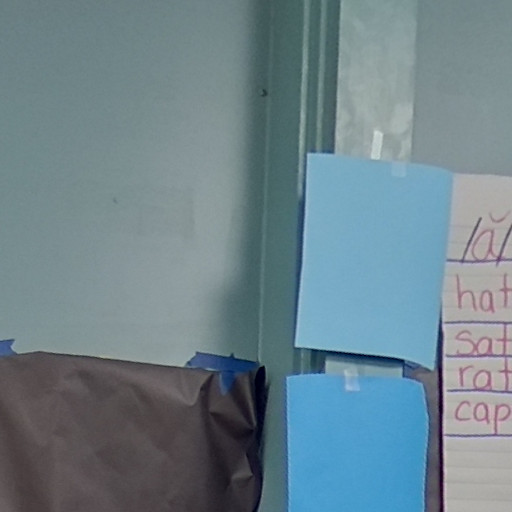 /ă/
hat
sat
rat
cap